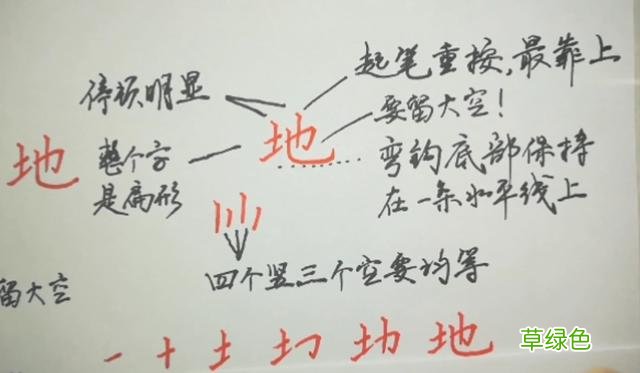 起笔重按,最靠上
停顿明显
要留大空!
地
地
整个字
是扁形
弯钩底部保持
在一条水平线上
四个竖三个空要均等
留大空
草绿色
地